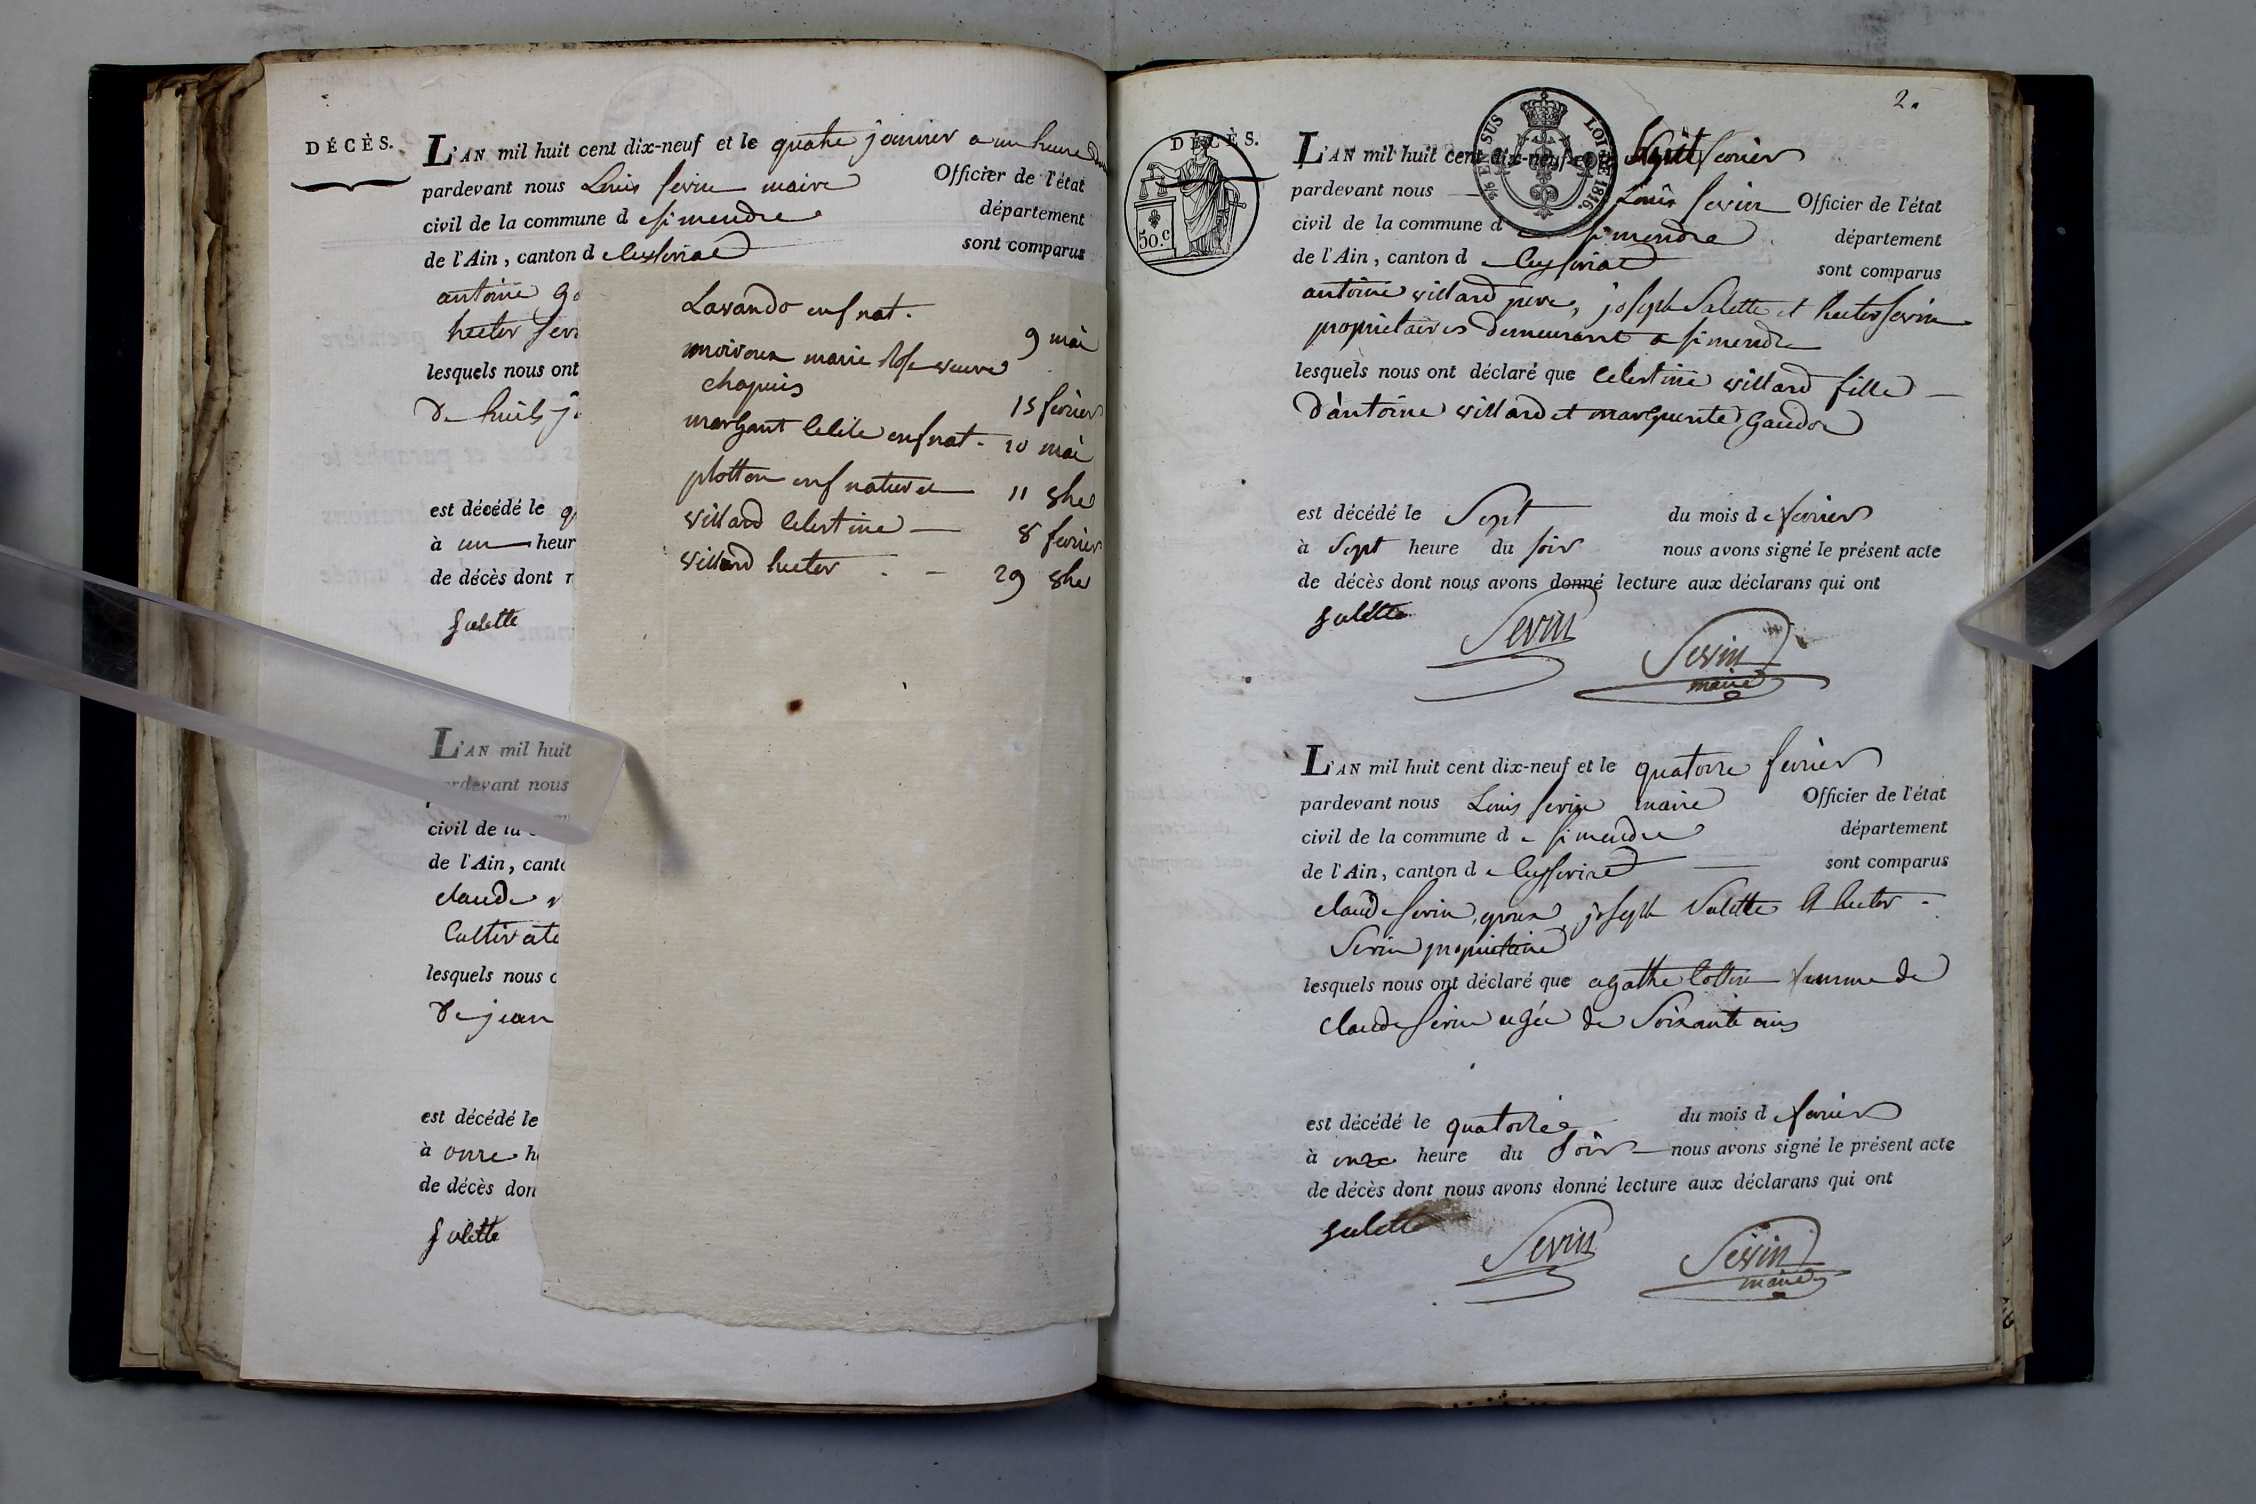 DÉCÈS.
L'AN mil huit cent dix-neuf et le quatre janvier a un heure du
pardevant nous Louis sevin maire Officier de l'état
civil de la commune d e simendre département
de l'Ain, canton d e ceyseriat sont comparus
antoine
hector sevi
lesquels nous ont
de huit j
est décédé le q
à un heur
de décès dont n
salette
L'AN mil huit
pardevant nous
civil de la comm
de l'Ain, canto
claude
cultivate
lesquels nous o
de jean
est décédé le
à onze h
de décès don
salette
Lavando enf nat.
9 mai
marie Rose veuve
chapuis
15 fevrier
margant cecile enf nat. 10 mai
plotton enf naturel 11 8bre
villard celestine — 8 fevrier
villard hector - 29 8bre
2.
DÉCÈS.
50.c
2/5 EN SUS LOI DE 1816.
L'AN mil huit cent dix-neuf et le huit fevrier
pardevant nous Louis sevin Officier de l'état
civil de la commune d e simendre département
de l'Ain, canton d e ceyseriat sont comparus
antoine villard pere, joseph salette et hector sevin
proprietaires demeurant a simendre
lesquels nous ont déclaré que celestine villard fille
d'antoine villard et marguerite gaudon
est décédé le sept du mois d e fevrier
à sept heure du soir nous avons signé le présent acte
de décès dont nous avons donné lecture aux déclarans qui ont
salette Sevin Sevin
maire
L'AN mil huit cent dix-neuf et le quatorze fevrier
pardevant nous Louis sevin maire Officier de l'état
civil de la commune d e simendre département
de l'Ain, canton d e ceyseriat sont comparus
claude sevin, epoux, joseph salette et hector
sevin proprietaire
lesquels nous ont déclaré que agathe femme de
claude sevin agée de soixante ans
est décédé le quatorze du mois d e fevrier
à onze heure du soir nous avons signé le présent acte
de décès dont nous avons donné lecture aux déclarans qui ont
salette Sevin Sevin
maire